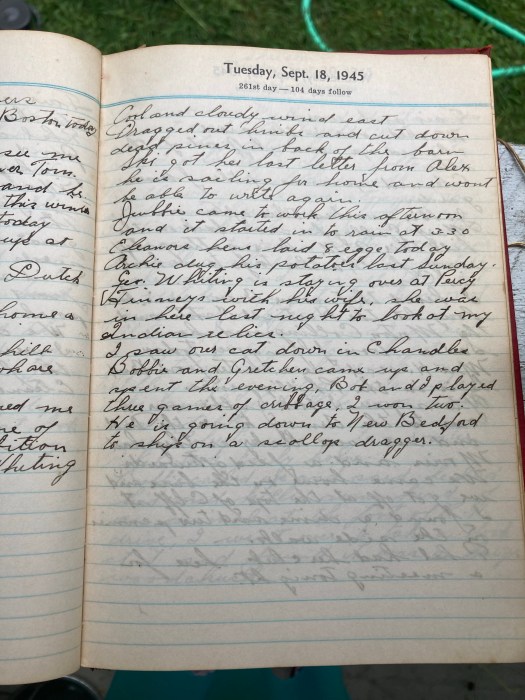 ers
Boston today
see me
ver Tom.
and he
this winter
today
up at
Dutch
home a
hill
oh are
ed me
ne of
tition
Whiting
Tuesday, Sept. 18, 1945
261st day — 104 days follow
Cool and cloudy wind east
Dragged out limbs and cut down
dead pines in back of the barn
Ski got her last letter from Alex
he is sailing for home and wont
be able to write again.
Jubbie came to work this afternoon
and it started in to rain at 330
Eleanors hens laid 8 eggs today
Archie dug his potatoes last Sunday.
Geo. Whiting is staying over at Percy
Kinneys with his wife, she was
in here last night to look at my
Indian relics.
I saw our cat down in Chandles
Bobbie and Gretchen came up and
spent the evening, Bob and I played
three games of cribbage, I won two.
He is going down to New Bedford
to ship on a scollop dragger.